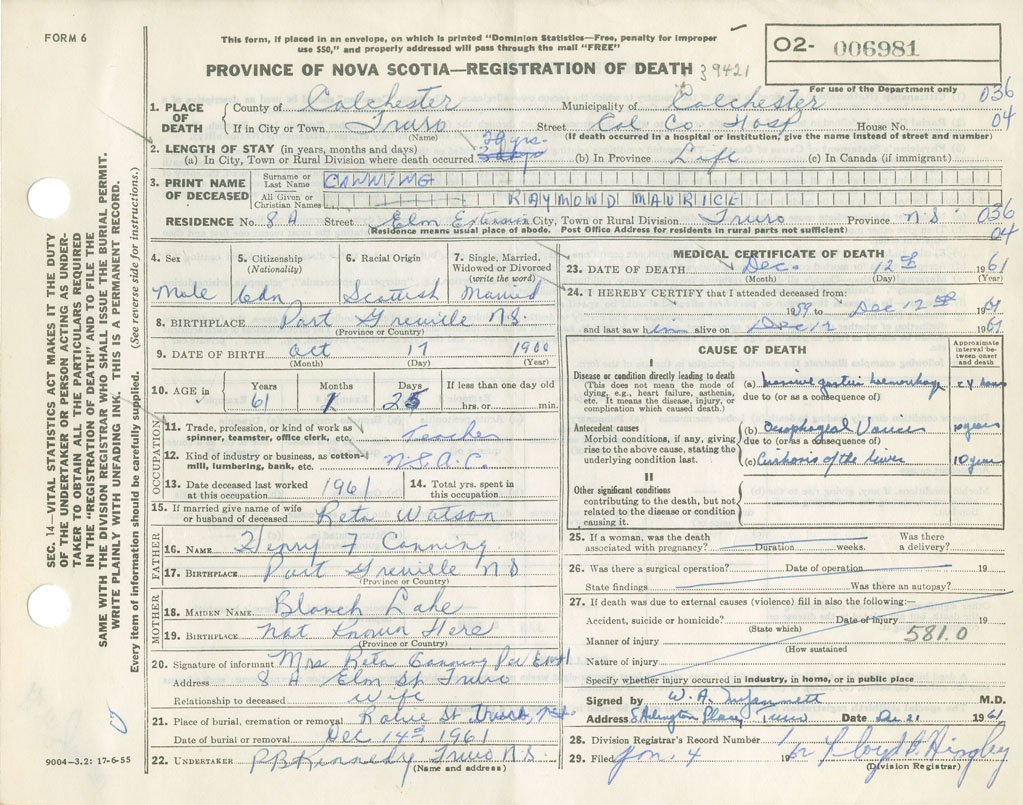 FORM 6
This form, if placed in an envelope, on which is printed "Dominion Statistics—Free, penalty for improper
use $50," and properly addressed will pass through the mail "FREE"
O2- 006981
PROVINCE OF NOVA SCOTIA—REGISTRATION OF DEATH 39421
For use of the Department only
1. PLACE OF DEATH County of Colchester Municipality of Colchester 036
If in City or Town Truro Street Col Co Hosp House No. 04
(Name) (If death occurred in a hospital or institution, give the name instead of street and number)
2. LENGTH OF STAY (in years, months and days) 29 yrs.
(a) In City, Town or Rural Division where death occurred 3 days (b) In Province Life (c) In Canada (if immigrant)
3. PRINT NAME OF DECEASED Surname or Last Name CANNING
All Given or Christian Names RAYMOND MAURICE
RESIDENCE No. 8 A Street Elm Extension City, Town or Rural Division Truro Province N.S. 036
(Residence means usual place of abode. Post Office Address for residents in rural parts not sufficient) 04
4. Sex 5. Citizenship (Nationality) 6. Racial Origin 7. Single, Married, Widowed or Divorced (write the word)
Male Cdn Scottish Married
8. BIRTHPLACE Port Greville N.S.
(Province or Country)
9. DATE OF BIRTH Oct 17 1900
(Month) (Day) (Year)
10. AGE in Years Months Days If less than one day old
61 1 25 hrs. or min.
OCCUPATION
11. Trade, profession, or kind of work as
spinner, teamster, office clerk, etc. Teacher
12. Kind of industry or business, as cotton-
mill, lumbering, bank, etc. N.S.A.C.
13. Date deceased last worked
at this occupation 1961
14. Total yrs. spent in
this occupation
15. If married give name of wife
or husband of deceased Reta Watson
FATHER
16. NAME Henry F Canning
17. BIRTHPLACE Port Greville N S
(Province or Country)
MOTHER
18. MAIDEN NAME Blanch Lake
19. BIRTHPLACE Not Known Here
(Province or Country)
20. Signature of informant Mrs Reta Canning Per
Address 8 A Elm St Truro
Relationship to deceased Wife
21. Place of burial, cremation or removal Robie St Truro, N.S.
Date of burial or removal Dec 14th, 1961
22. UNDERTAKER P B Kennedy Truro N.S.
(Name and address)
MEDICAL CERTIFICATE OF DEATH
23. DATE OF DEATH Dec. 12th 1961
(Month) (Day) (Year)
24. I HEREBY CERTIFY that I attended deceased from:
1959 to Dec 12th 1961
and last saw him alive on Dec 12 1961
CAUSE OF DEATH
Approximate interval between onset and death
I
Disease or condition directly leading to death
(This does not mean the mode of
dying, e.g., heart failure, asthenia,
etc. It means the disease, injury, or
complication which caused death.)
(a) massive gastric haemorrhage
due to (or as a consequence of)
Antecedent causes
Morbid conditions, if any, giving
rise to the above cause, stating the
underlying condition last.
(b) Oesophageal Varices
due to (or as a consequence of)
(c) Cirrhosis of the liver 10 years
II
Other significant conditions
contributing to the death, but not
related to the disease or condition
causing it.
25. If a woman, was the death Was there
associated with pregnancy? Duration weeks. a delivery?
26. Was there a surgical operation? Date of operation 19
State findings Was there an autopsy?
27. If death was due to external causes (violence) fill in also the following:—
Accident, suicide or homicide? Date of injury 19
(State which)
Manner of injury 581.0
(How sustained
Nature of injury
Specify whether injury occurred in industry, in home, or in public place
Signed by W. A. M.D.
Address 8 Arlington Place, Truro Date Dec 21 1961
28. Division Registrar's Record Number 1
29. Filed Jan. 4 19 Lloyd
(Division Registrar)
SEC. 14—VITAL STATISTICS ACT MAKES IT THE DUTY
OF THE UNDERTAKER OR PERSON ACTING AS UNDER-
TAKER TO OBTAIN ALL THE PARTICULARS REQUIRED
IN THE "REGISTRATION OF DEATH" AND TO FILE THE
SAME WITH THE DIVISION REGISTRAR WHO SHALL ISSUE THE BURIAL PERMIT.
WRITE PLAINLY WITH UNFADING INK. THIS IS A PERMANENT RECORD.
Every item of information should be carefully supplied. (See reverse side for instructions.)
9004-3.2: 17-6-55